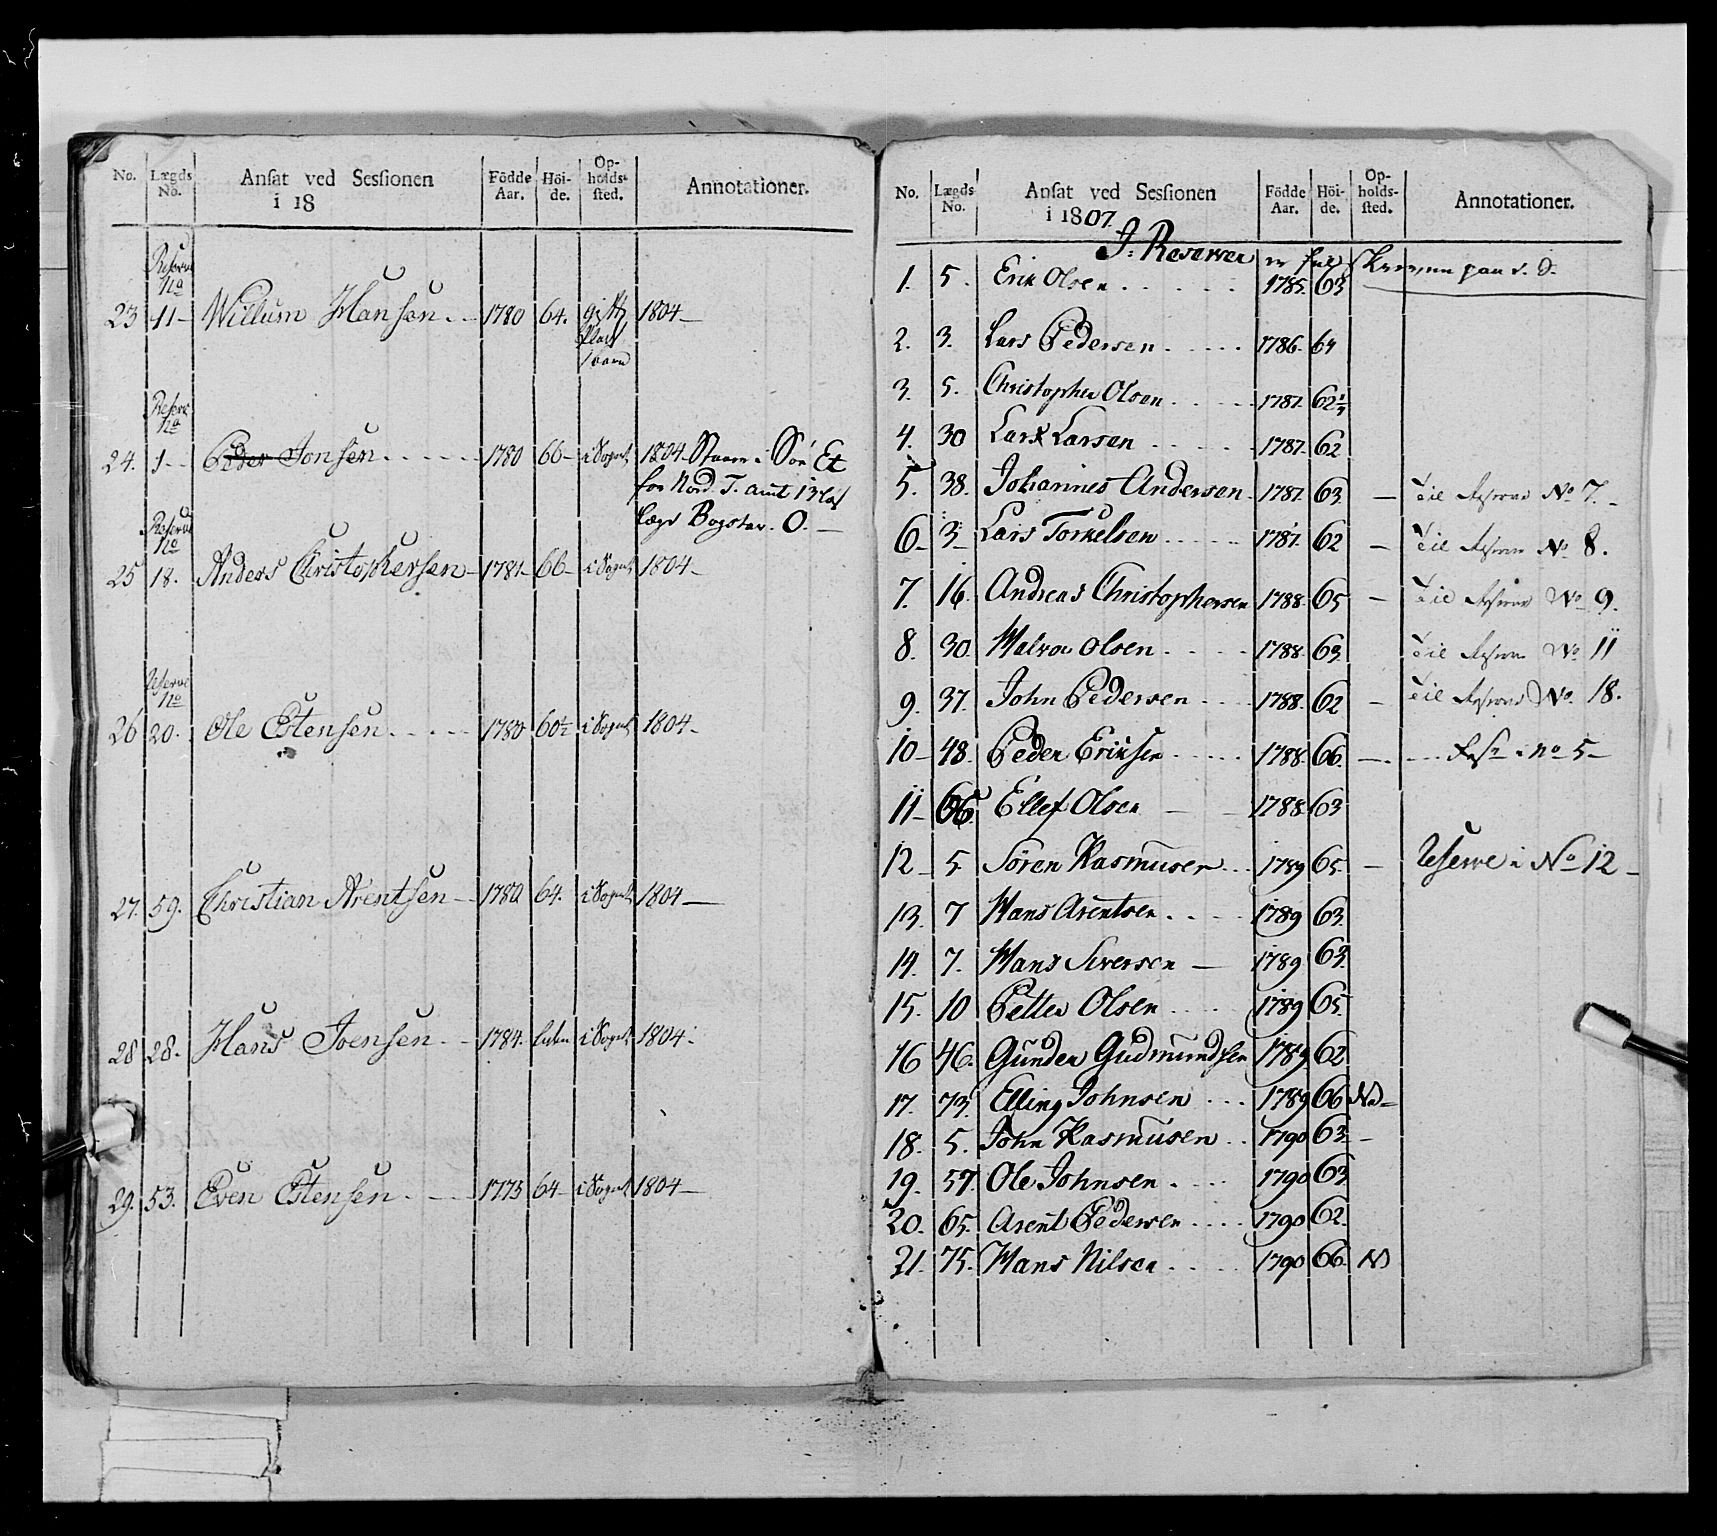 No. Lægds No. Ansat ved Sessionen i 18 Födde Aar. Höide. Opholdssted. Annotationer.
Reserve No
23 11 – Willum Hansen . . – 1780 64. gift 1804 –
Plads
1 barn
Reserve No
24. 1 – Peder Jonsen . . . . . 1780 66 – i Sognet 1804 Staaer i Sön Et
for Nord. T. amt 13 las
lægd Bogstav. O. –
Reserve No
25 18. Anders Christophersen – 1781 – 66 – i Sognet 1804 –
Reserve No
26 20. Ole Estensen . . . . 1780 60½ i Sognet 1804 –
27. 59. Christian Arentsen – 1780 64. i Sognet 1804 –
28 28. Hans Joensen . . 1784. i Sognet 1804 .
29. 53. Even Estensen . . . 1775 64 – i Sognet 1804 –
No. Lægds No. Ansat ved Sessionen i 1807. Födde Aar. Höide. Opholdssted. Annotationer.
I Reserven
1. 5. Erik Olsen . . . . . 1785. 63
2. 3. Lars Pedersen . . . . . 1786. 64
3. 5. Christopher Olsen . . . . 1787. 62½
4. 30 Lars Larsen . . . . 1787. 62
5. 38. Johannes Andersen . 1787. 63 – Til Reserve No 7. –
6 – 3 – Lars Torkelsen . . . . . 1787. 62 – Til Reserve No 8.
7. 16. Andreas Christophersen 1788. 65 – Til Reserve No 9.
8. 30. Halvor Olsen . . . . 1788. 63 Til Reserve No 11
9. 37. John Pedersen . . . 1788. 62 – Til Reserve No. 18.
10 – 48. Peder Eriksen . . . . . 1788. 66. – . . . . Res: no 5 –
11 – 66. Ellef Olsen – – 1788. 63
12 – 5 Sören Rasmusen . . . 1789 65. – Reserve i No 12 –
13. 7 Hans Arentsen . . . . 1789 63.
14. 7. Hans Siversen – 1789 63.
15. 10 Petter Olsen . . . . 1789 65.
16 46. Gunder Gudmundsen 1789. 62
17. 73. Elling Johnsen . . . 1789 66 Nd –
18. 5. John Rasmusen . . 1790 63. –
19. 57. Ole Johnsen . . . . 1790 63
20. 65. Arent Pedersen . . . . 1790 62.
21. 75. Hans Nilsen . . . . . 1790 66. Nd